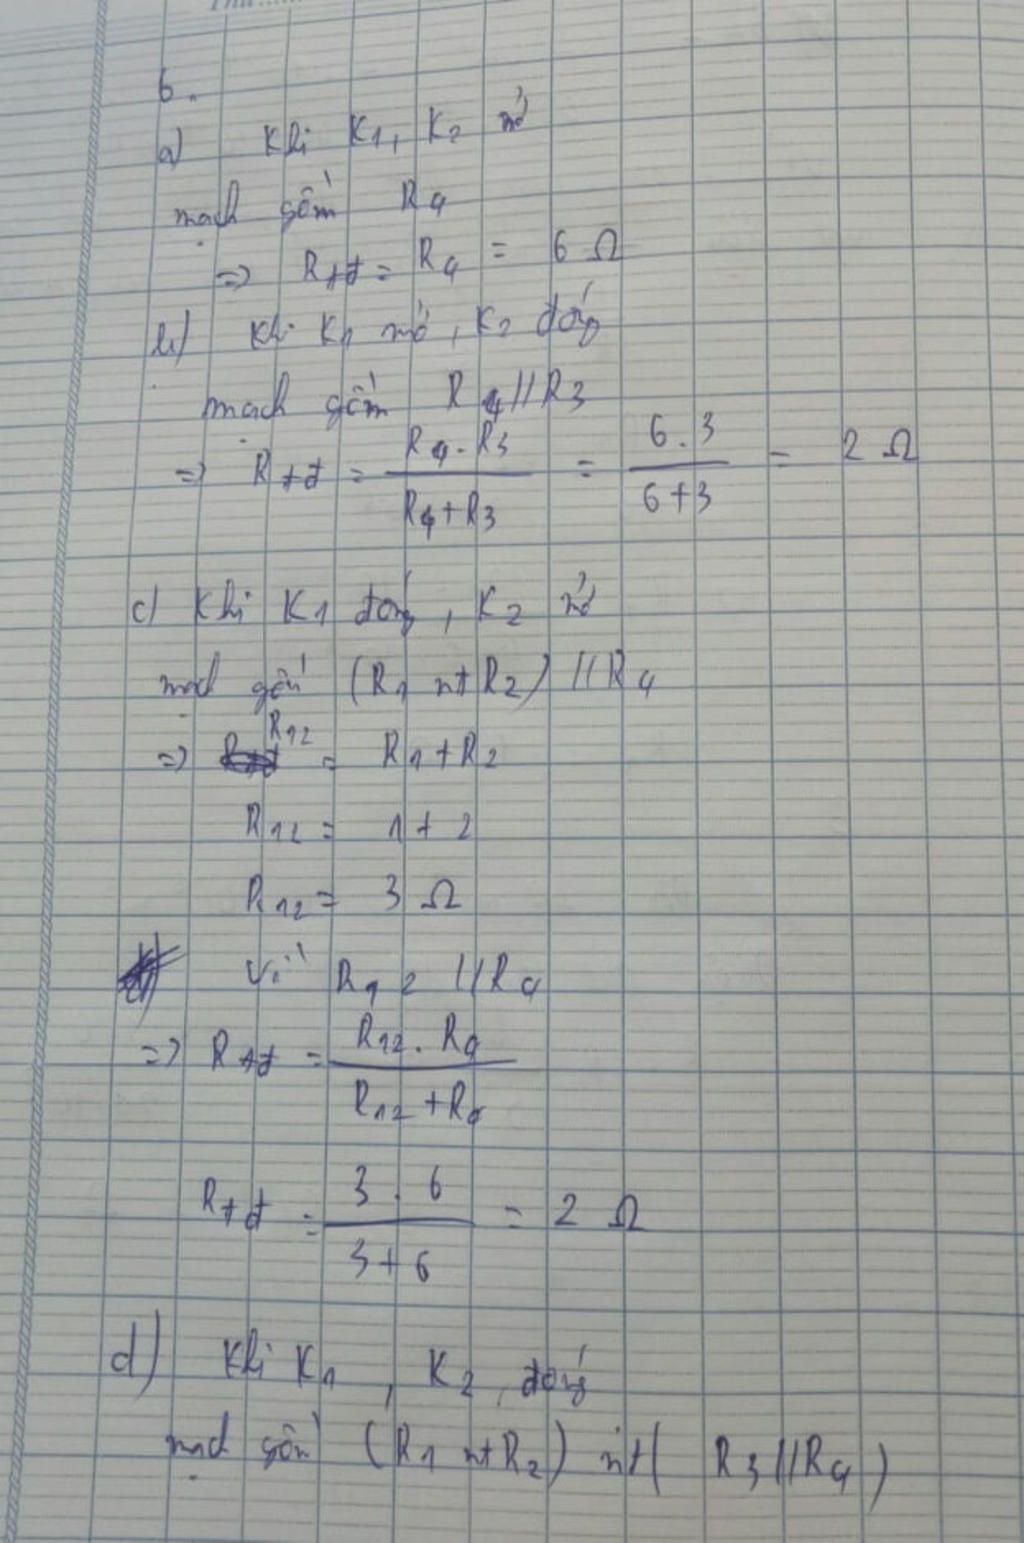 6.
a) Khi K1, K2 mở
mạch gồm R4
=> Rtđ = R4 = 6 Ω
b) Khi K1 mở, K2 đóng
mạch gồm R4 // R3
=> Rtđ = R4 . R3 / R4 + R3 = 6 . 3 / 6 + 3 = 2 Ω
c) Khi K1 đóng, K2 mở
mạch gồm (R1 nt R2) // R4
=> R12 = R1 + R2
R12 = 1 + 2
R12 = 3 Ω
Vì R12 // R4
=> Rtđ = R12 . R4 / R12 + R4
Rtđ = 3 . 6 / 3 + 6 = 2 Ω
d) Khi K1, K2, đóng
mạch gồm (R1 nt R2) nt ( R3 // R4 )